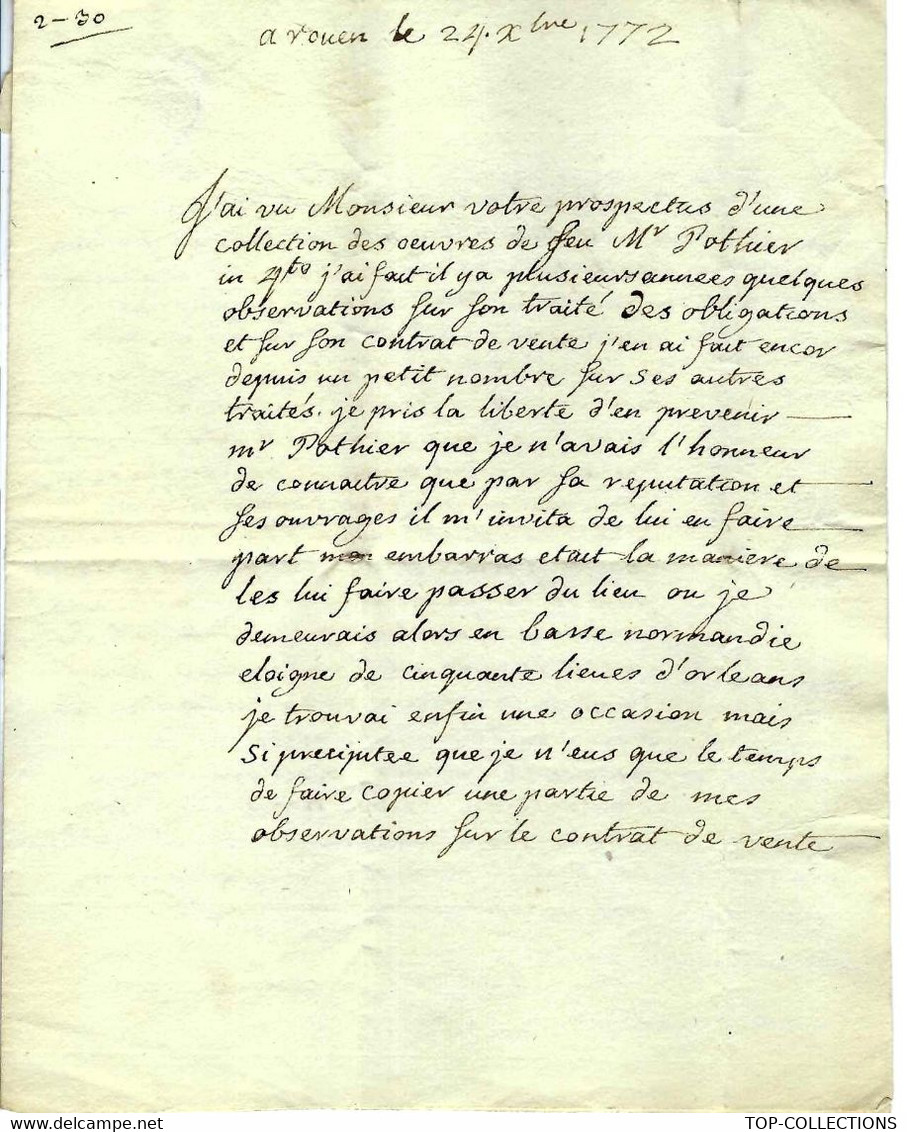 2-30
a rouen le 24. Xbre 1772
J'ai vu Monsieur votre prospectus d'une
collection des oeuvres de feu Mr Pothier
in 4to j'ai fait il y a plusieurs années quelques
observations sur son traité des obligations
et sur son contrat de vente j'en ai fait encor
depuis un petit nombre sur ses autres
traités. je pris la liberté d'en prevenir
mr Pothier que je n'avais l'honneur
de connaitre que par sa reputation et
ses ouvrages il m'invita de lui en faire
part mon embarras etait la maniere de
les lui faire passer du lieu ou je
demeurais alors en basse normandie
eloigne de cinquante lieues d'orleans
je trouvai enfin une occasion mais
si precipitee que je n'eus que le temps
de faire copier une partie de mes
observations sur le contrat de vente
TOP-COLLECTIONS